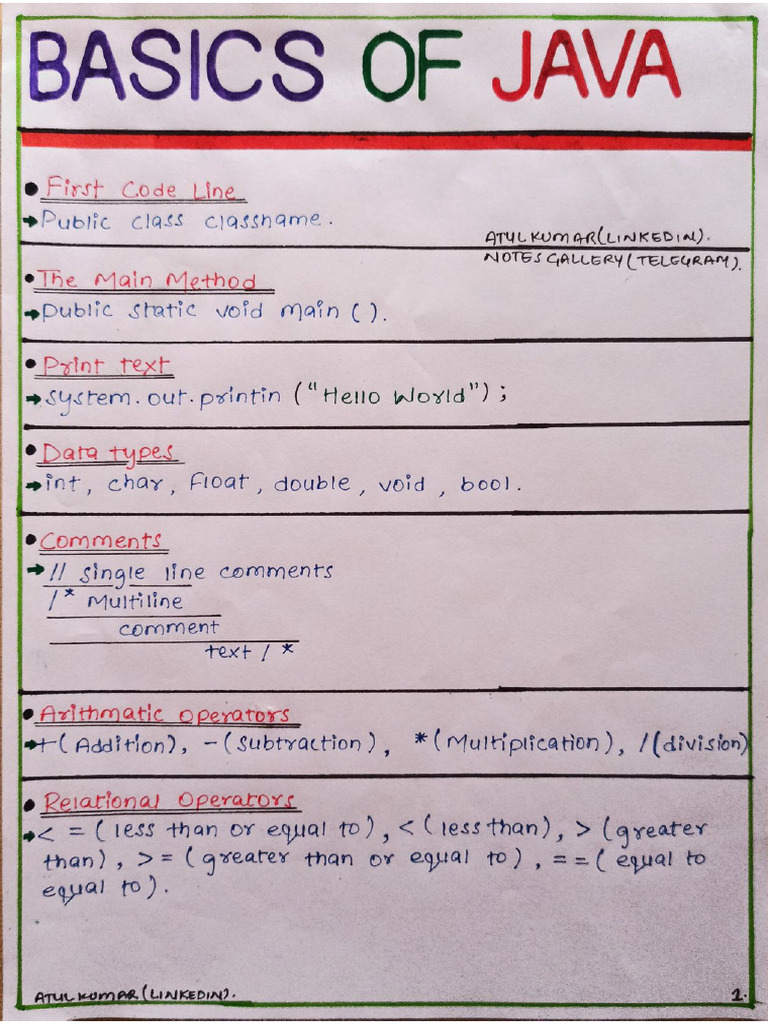 BASICS OF JAVA
• First Code Line
→ Public class classname.
ATUL KUMAR (LINKEDIN).
NOTES GALLERY (TELEGRAM).
• The Main Method
→ Public static void main ().
• Print text
→ system.out.printin ("Hello World");
• Data types
→ int, char, Float, double, void, bool.
• Comments
→ // single line comments
/* Multiline
comment
text / *
• Arithmatic operators
→ +(Addition), -(subtraction), *(Multiplication), /(division)
• Relational Operators
→ < = (less than or equal to), < (less than), > (greater
than), > = (greater than or equal to), = = (equal to
equal to).
ATUL KUMAR (LINKEDIN).
1.